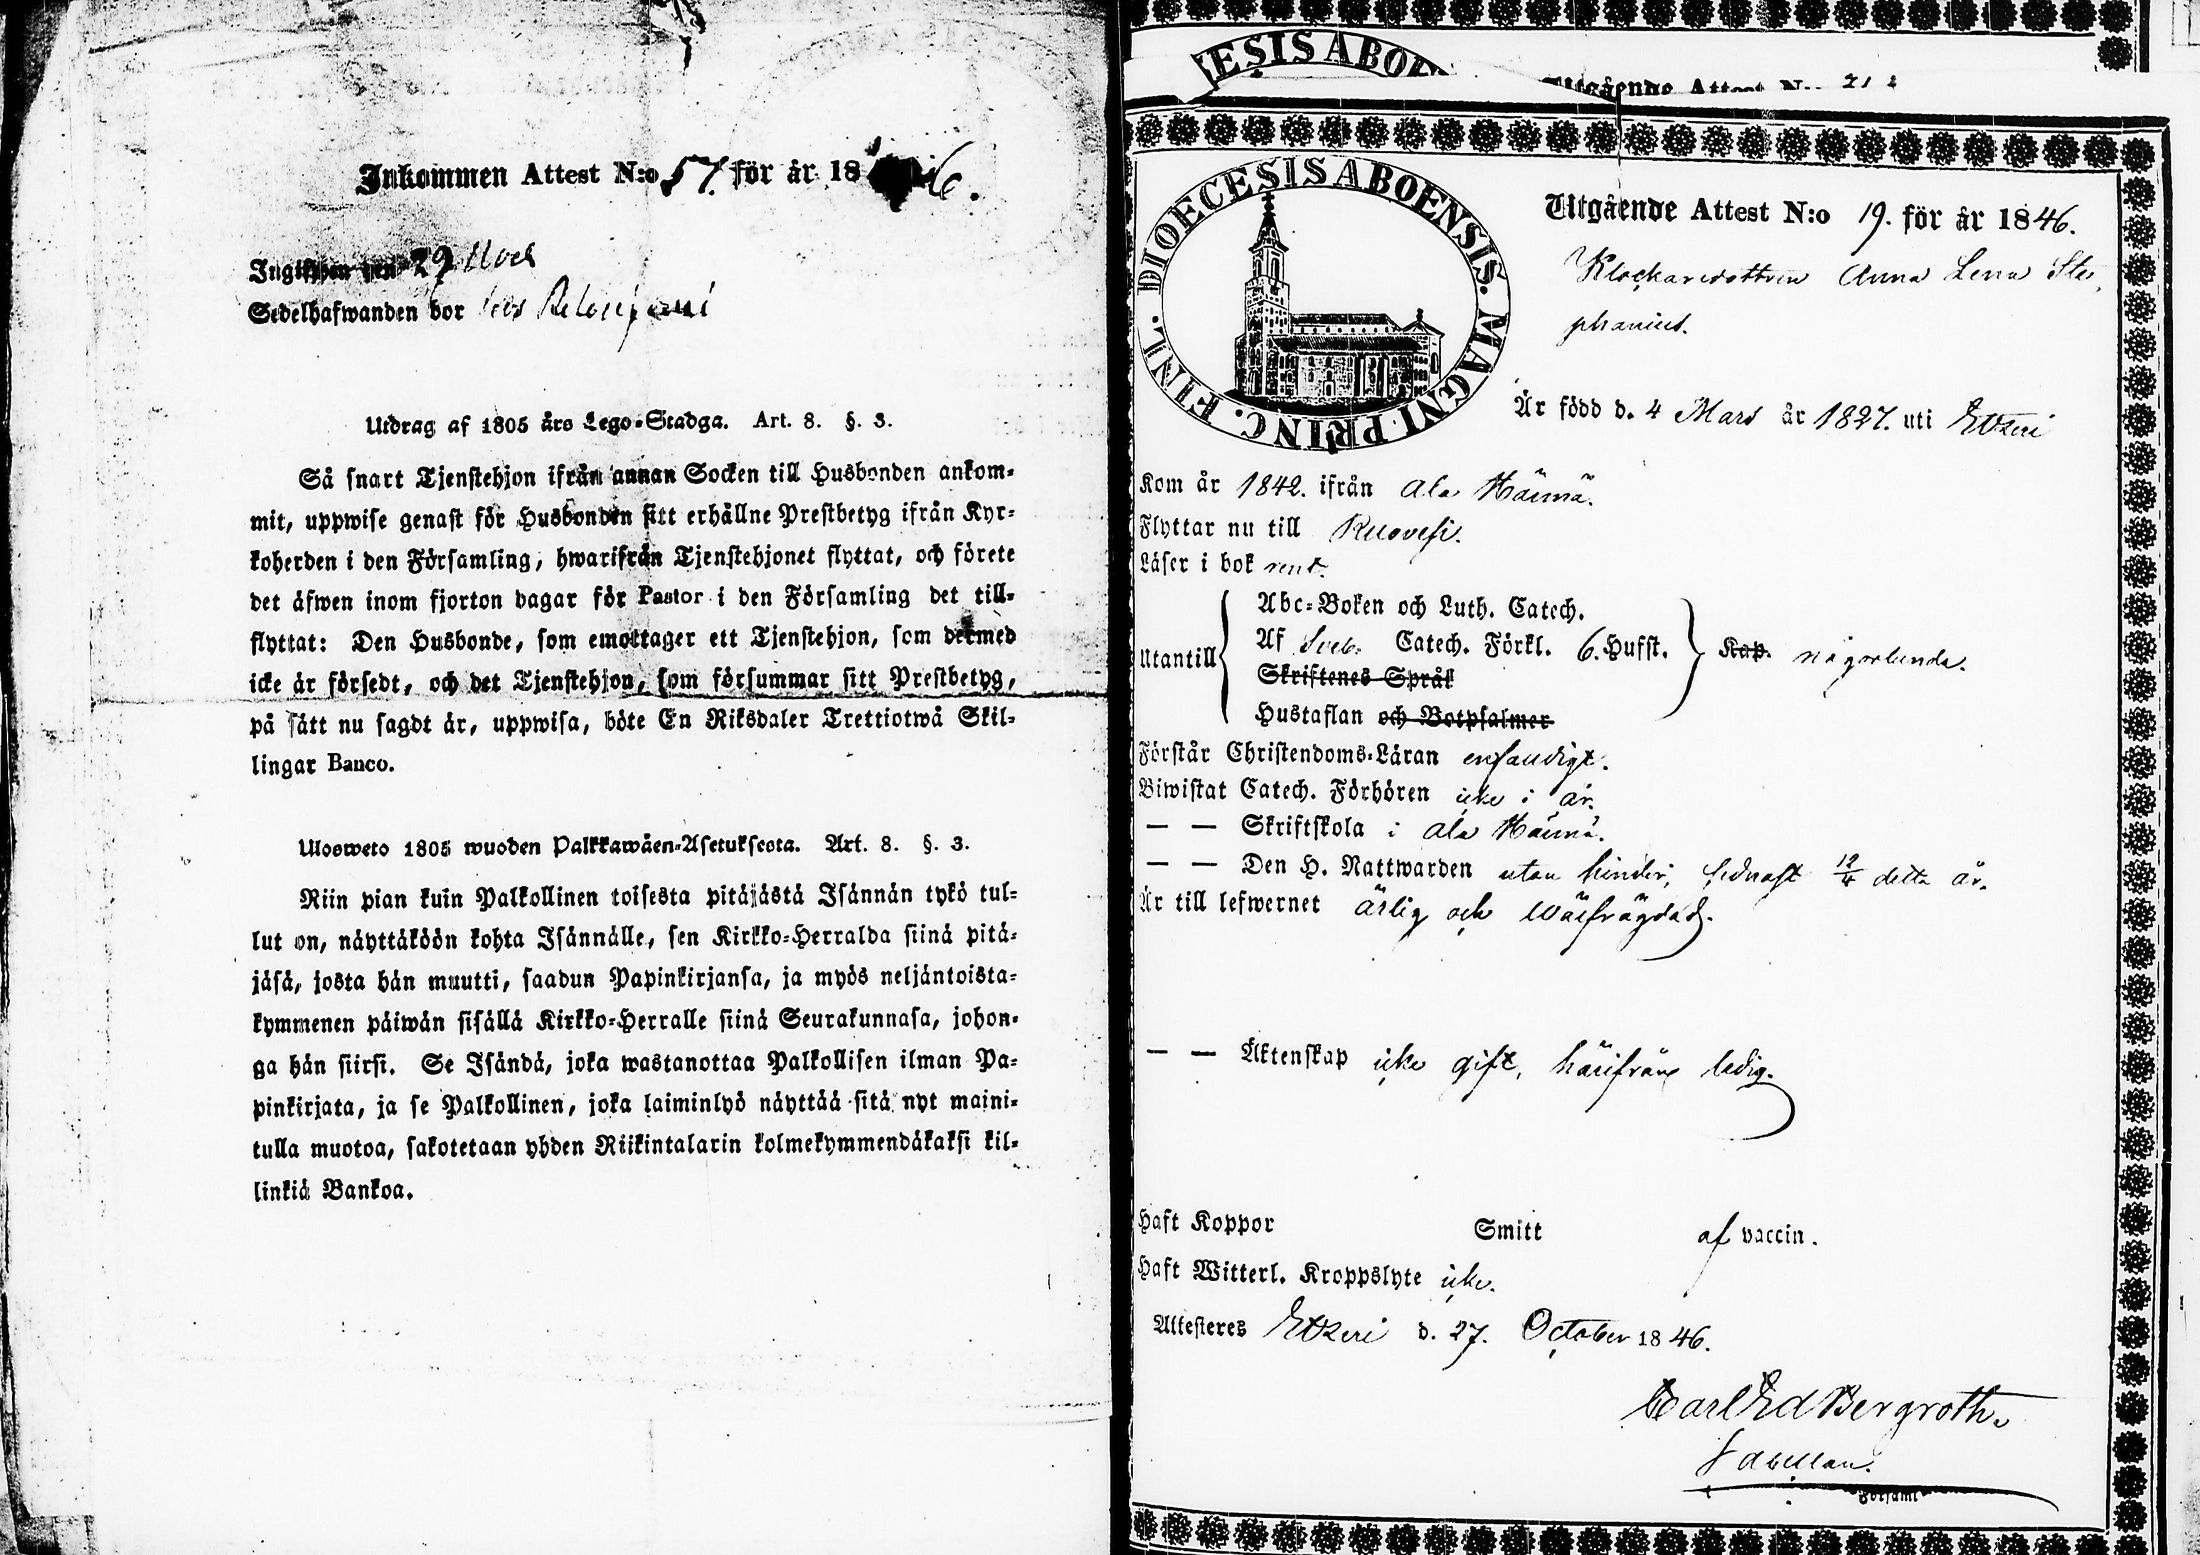 Inkommen Attest N:o 57. för år 18 46.
Ingifwen den 29 Nov
Sedelhafwanden bor hos
Utdrag af 1805 års Lego-Stadga. Art. 8. §. 3.
Så snart Tjenstehjon ifrån annan Socken till Husbonden ankom-
mit, uppwise genast för Husbonden sitt erhållne Prestbetyg ifrån Kyr-
koherden i den Församling, hwarifrån Tjenstehjonet flyttat, och förete
det äfwen inom fjorton dagar för Pastor i den Församling det till-
flyttat: Den Husbonde, som emottager ett Tjenstehjon, som dermed
icke är försedt, och det Tjenstehjon, som försummar sitt Prestbetyg,
på sätt nu sagdt är, uppwisa, böte En Riksdaler Trettiotwå Skil-
lingar Banco.
Ulosweto 1805 wuoden Palkkawäen-Asetuksesta. Art. 8. §. 3.
Niin pian kuin Palkollinen toisesta pitäjästä Isännän tykö tul-
lut on, näyttäköön kohta Isännälle, sen Kirkko-Herralda siinä pitä-
jäsä, josta hän muutti, saadun Papinkirjansa, ja myös neljäntoista-
kymmenen päiwän sisällä Kirkko-Herralle siinä Seurakunnasa, johon-
ga hän siirsi. Se Isändä, joka wastanottaa Palkollisen ilman Pa-
pinkirjata, ja se Palkollinen, joka laiminlyö näyttää sitä nyt maini-
tulla muotoa, sakotetaan yhden Riikintalarin kolmekymmendäkaksi kil-
linkiä Bankoa.
ESIS ABOE
Utgående Attest N:
DIOECESIS ABOENSIS. MAGNI PRINC. FINL.
Utgående Attest N:o 19. för år 1846.
Klockaredottren Anna Lena Ste-
phanius.
Är född d. 4 Mars år 1827. uti Etzeri
Kom år 1842. ifrån Ala Härmä.
Flyttar nu till Ruovesi.
Läser i bok rent.
Utantill
Abc-Boken och Luth. Catech.
Af Sveb. Catech. Förkl. 6. Hufst. Kap. någorlunda.
Skriftenes Språk
Hustaflan och Botpsalmer
Förstår Christendoms-Läran enfaldigt.
Biwistat Catech. Förhören icke i år.
— — Skriftskola i Ala Härmä.
— — Den H. Nattwarden utan hinder, sednast 12/4 detta år.
Är till lefwernet ärlig och wälfrägdad.
— — Äktenskap icke gift, härifrån ledig.
Haft Koppor Smitt af vaccin.
Haft Witterl. Kroppslyte icke.
Attesteres Etzeri d. 27. October 1846.
Carl Ed Bergroth.
Församl